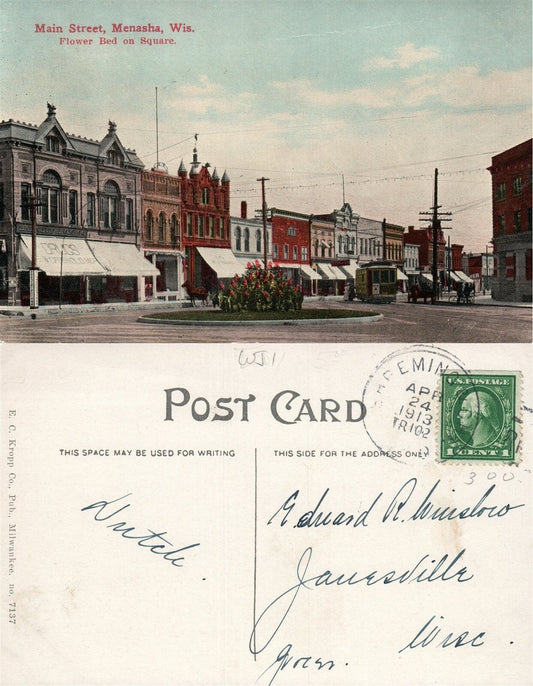 Main Street, Menasha, Wis.
Flower Bed on Square.
DRUGS
WJ1
POST CARD
THIS SPACE MAY BE USED FOR WRITING
THIS SIDE FOR THE ADDRESS ONLY
APR
24
1913
TR102
U.S. POSTAGE
1 CENT 1
300
E. C. Kropp Co., Pub., Milwaukee. no. 7137
Dutch.
Edward R. Winslow
Janesville
Wisc.